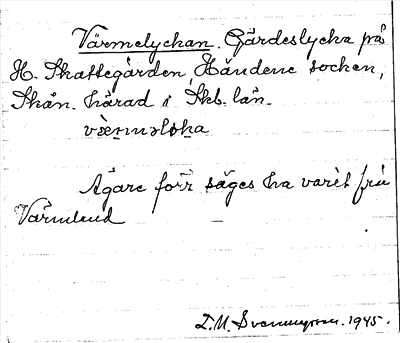 Värmelyckan. Gärdeslycka på
H. Skattegården, Händene socken,
Skån. härad i Skb. län.
Ägare förr säges ha varit från
Värmland
1945.